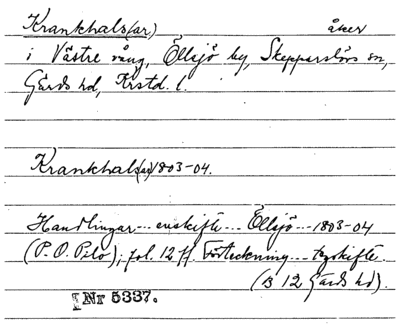 Krankhals(ar) åker
i Västre vång, Öllsjö by, Skepparslövs sn,
Gärds hd, Krstd. l.
Krankhals(ar) 1803-04.
Handlingar--- enskifte--- Öllsjö--- 1803-04
(P. O. Pilo), fol. 12 ff. Förteckning --- egoskifte.
(B 12 Gärds hd).
Nr 5337.